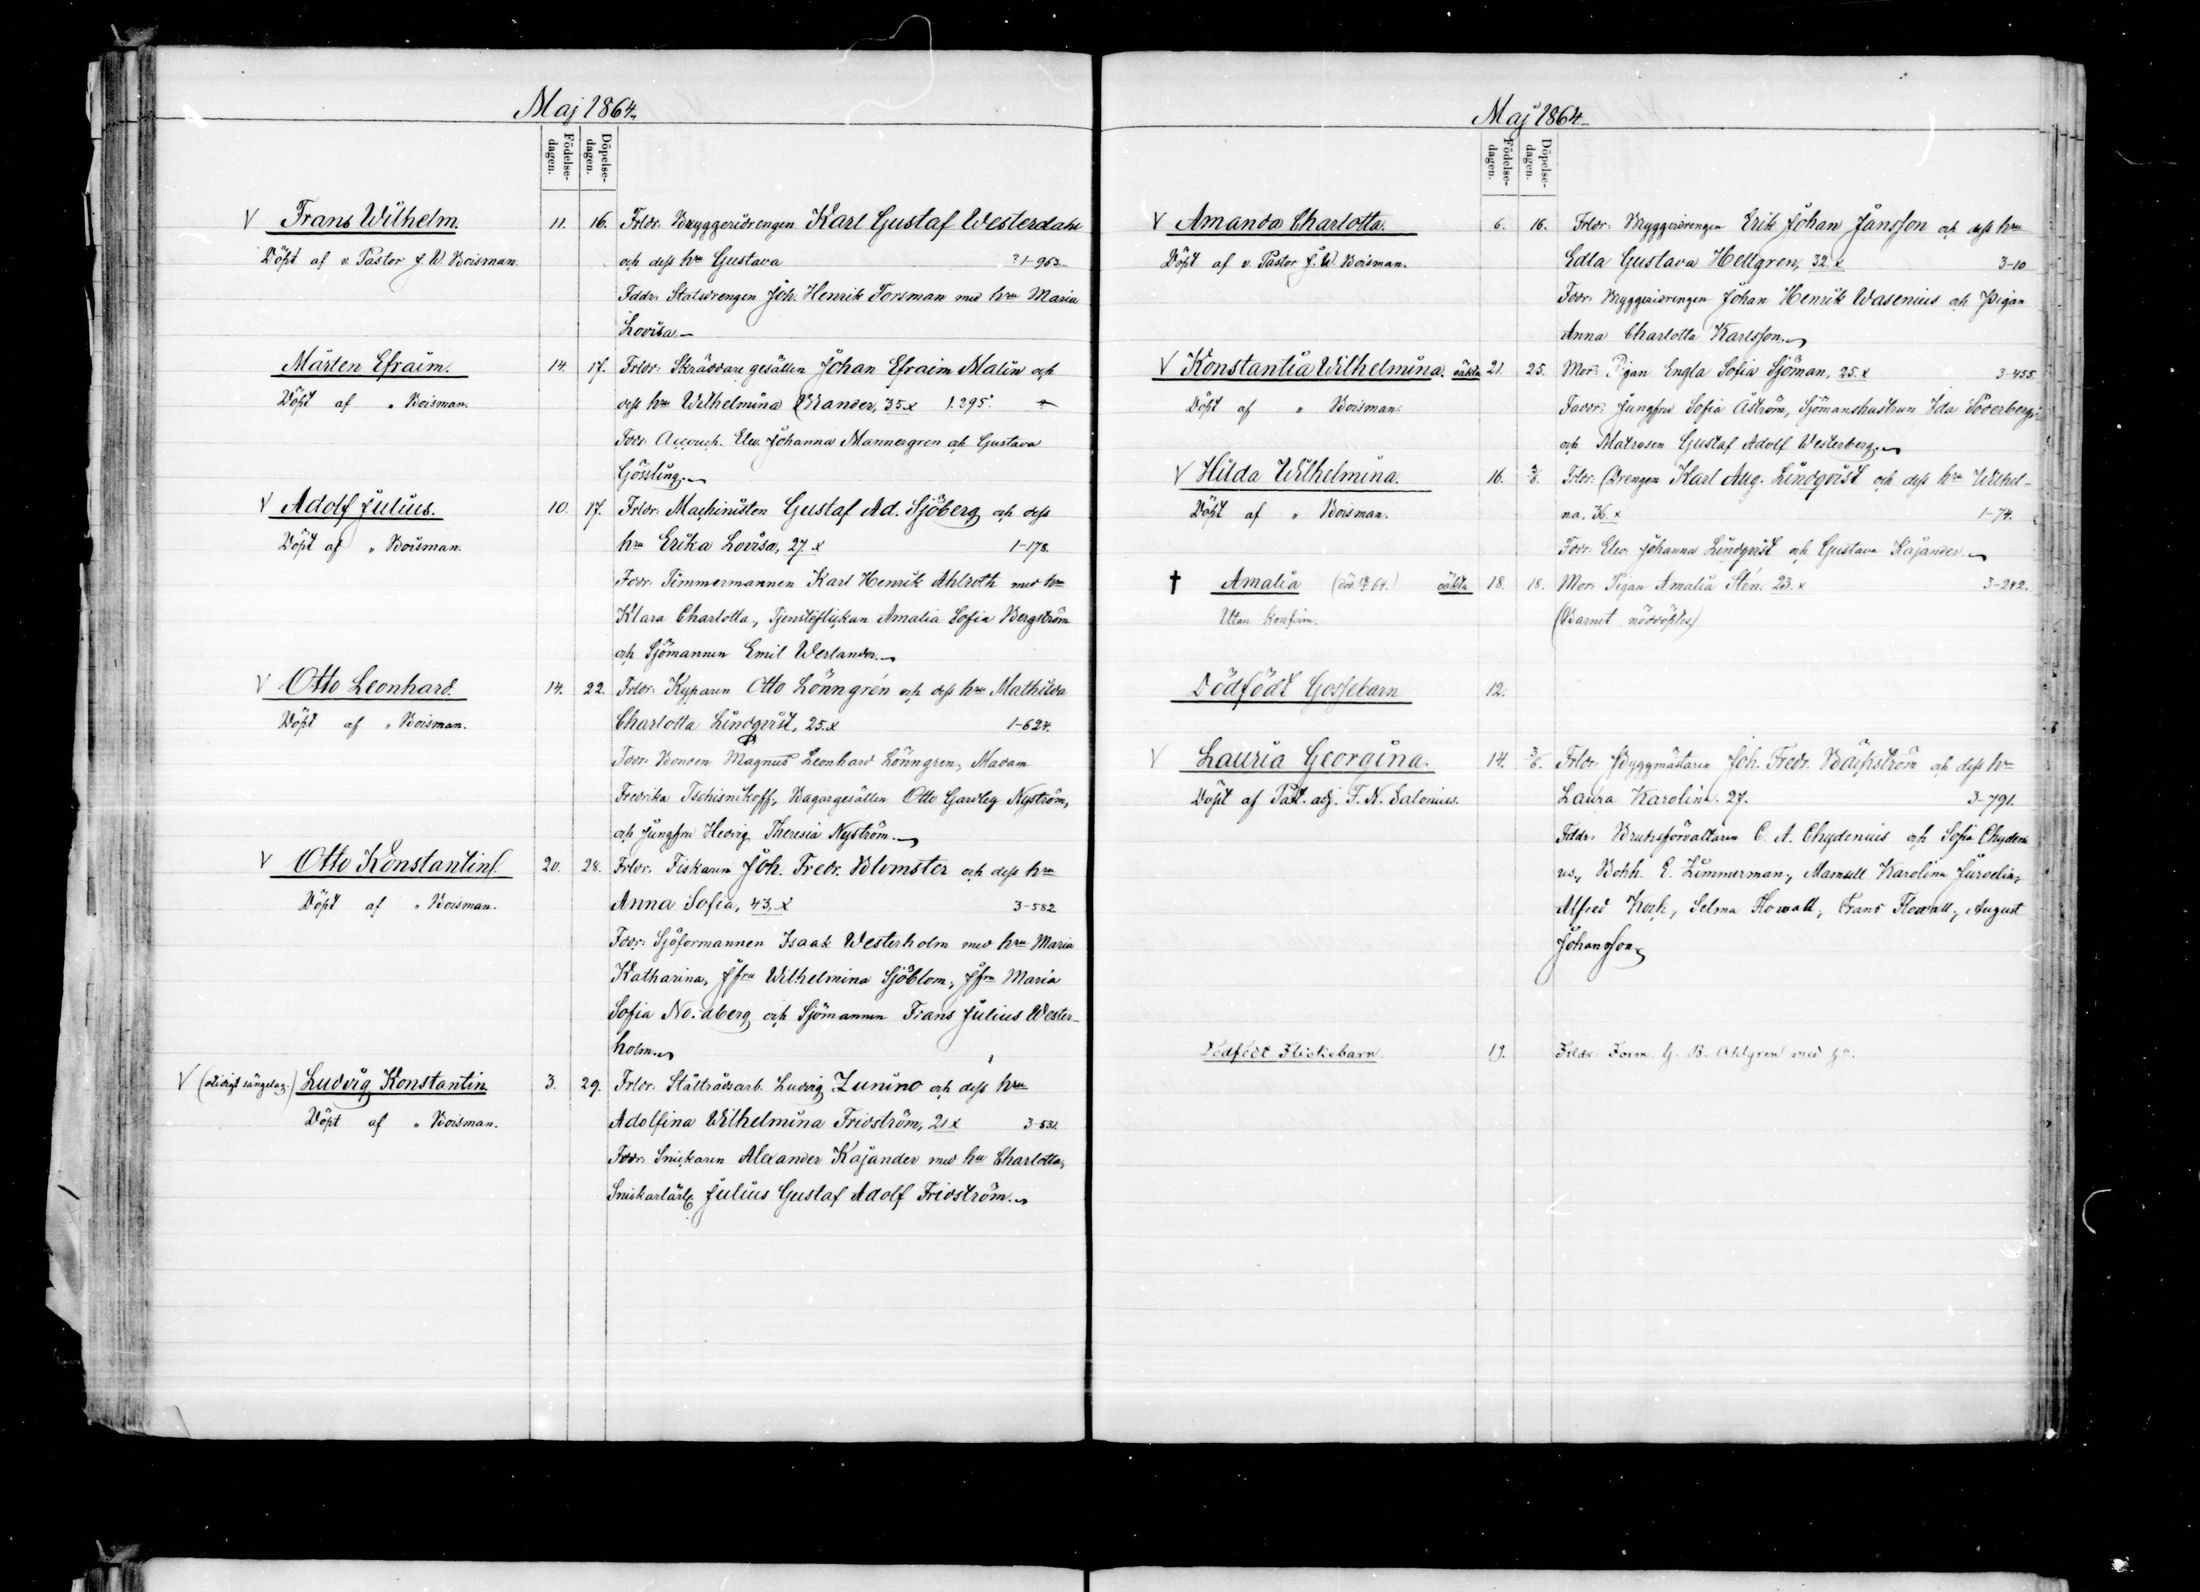 Maj 1864.
Födelse-
dagen.
Döpelse-
dagen.
V Frans Wilhelm. 11. 16. Frldr. Bryggeridrengen Karl Gustaf Westerdahl
Döpt af v. Pastor J. W. Boisman. och dess hru Gustava ? 1-963.
Fddr. Statdrengen Joh. Henrik Forsman med hru Maria
Lovisa.
Mårten Efraim. 14. 17. Frldr. Skräddare gesällen Johan Efraim Malin och
Döpt af " Boisman. dess hru Wilhelmina Wrander, 35.x 1.295.
Fddr. Accouch. Elev. Johanna Mannergren och Gustava
Gössling.
V Adolf Julius. 10. 17. Frldr. Machinisten Gustaf Ad. Sjöberg och dess
Döpt af " Boisman. hru Erika Lovisa, 27.x 1-178.
Fddr. Timmermannen Karl Henrik Ahlroth med hru
Klara Charlotta, Tjensteflickan Amalia Sofia Bergström
och Sjömannen Emil Werlander.
V Otto Leonhard. 14. 22. Frldr. Kyparen Otto Lönngrén och dess hru Mathilda
Döpt af " Boisman. Charlotta Lindqvist, 25.x 1-624.
Fddr. Bonden Magnus Leonhard Lönngren, Madam
Fredrika Tschisnikoff, Bagargesällen Otto Nyström,
och Jungfru Hedvig Theresia Nyström.
V Otto Konstantin. 20. 28. Frldr. Fiskaren Joh. Fredr. Blomster och dess hru
Döpt af " Boisman. Anna Sofia, 43.x 3-582
Fddr. Sjöformannen Isaak Westerholm med hru Maria
Katharina, Jfru Wilhelmina Sjöblom, Jfru Maria
Sofia Nordberg och Sjömannen Frans Julius Wester-
holm.
V Ludvig Konstantin 3. 29. Frldr. Ludvig Zunino och dess hru
Döpt af " Boisman. Adolfina Wilhelmina Fridström, 21.x 3-531.
Fddr. Snickaren Alexander Kajander med hru Charlotta,
Snickarlärl. Julius Gustaf Adolf Fridström.
Maj 1864.
Födelse-
dagen.
Döpelse-
dagen.
V Amanda Charlotta. 6. 16. Frldr. Bryggeridrengen Erik Johan Jansson och dess hru
Döpt af v. Pastor J. W. Boisman. Edla Gustava Hellgren, 32.x 3-10
Fddr. Bryggeridrengen Johan Henrik Wasenius och Pigan
Anna Charlotta Karlsson.
V Konstantia Wilhelmina. oäkta 21. 25. Mor: Pigan Engla Sofia Sjöman, 25.x 3-455.
Döpt af " Boisman. Faddr. Jungfru Sofia Åström, Sjömanshustrun Ida Söderberg
och Matrosen Gustaf Adolf Westerberg.
V Hilda Wilhelmina. 16. 3/6. Frldr. Drengen Karl Aug. Lindqvist och dess hru Wilhel-
Döpt af " Boisman. na, 36.x 1-74.
Fddr. Elev. Johanna Lindqvist och Gustava Kajander.
† Amalia oäkta 18. 18. Mor. Pigan Amalia Stén. 23.x 3-242.
Utan Konfirm. (Barnet nöddöptes)
Dödfödt Gossebarn 12.
V Lauria Georgina. 14. 3/6. Frldr. Byggmästaren Joh. Fredr. Bäckström och dess hru
Döpt af Past. adj. F. N. Salonius. Laura Karolina. 27. 3-791.
Fddr. Bruksförvaltaren C. A. Chydenius och Sofia Chydeni
us, Bokh. E. Zimmerman, Mamsell Karolina
Alfred Kock, Selma Flowall, Frans Flowall, August
Johansson
Dödfödt Flickebarn. 19. Frldr. Form. G. B. Ahlgren med hu.